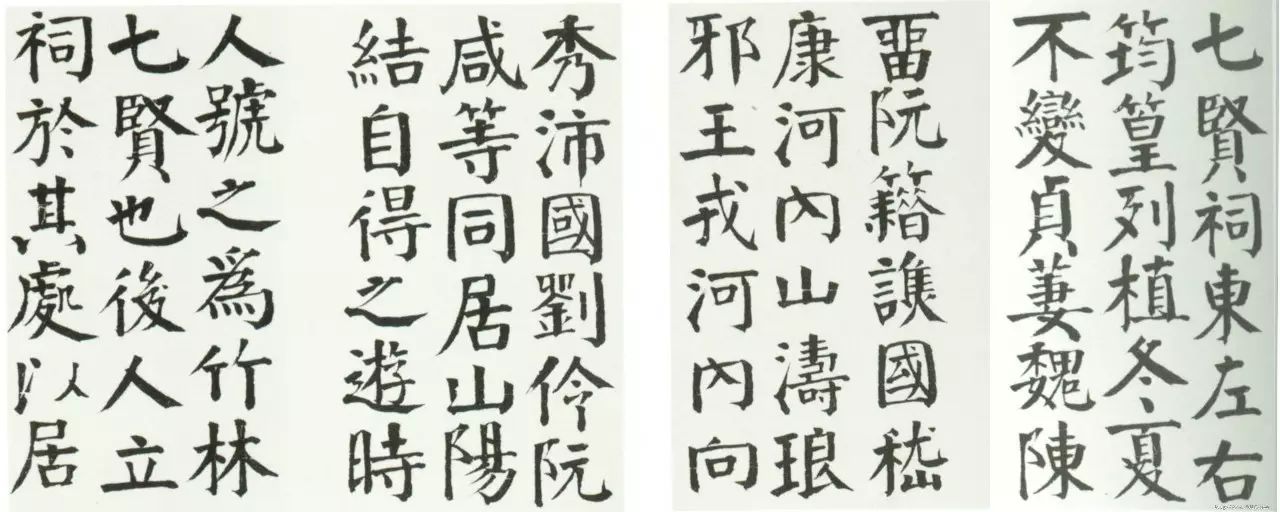 七賢祠東左右
筠篁列植冬夏
不變貞萋魏陳
畱阮籍譙國嵇
康河內山濤琅
邪王戎河內向
秀沛國劉伶阮
咸等同居山陽
結自得之遊時
人號之爲竹林
七賢也後人立
祠於其處以居